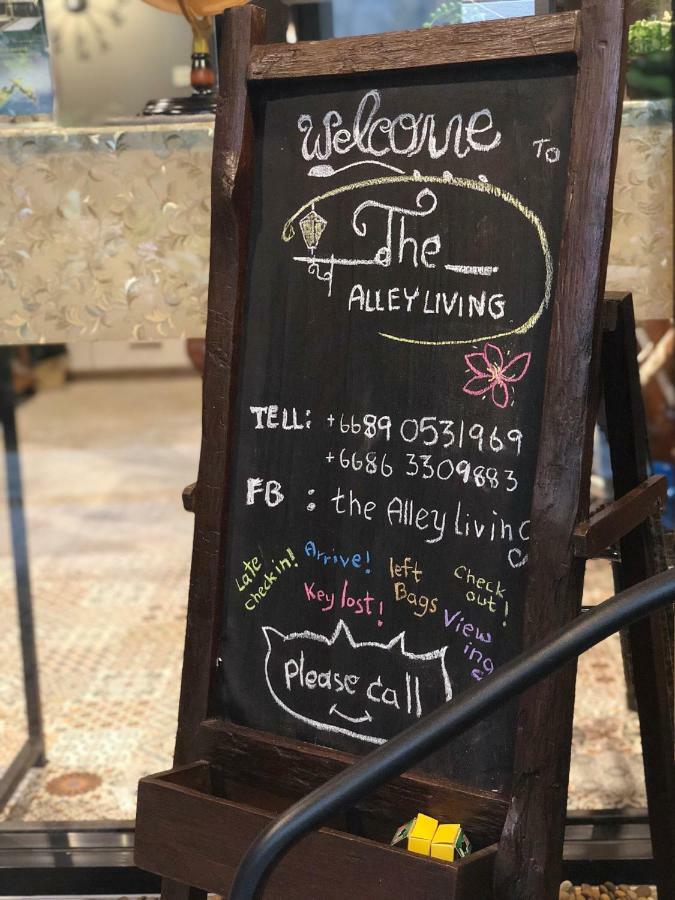 Welcome TO
The
ALLEY LIVING
TELL: +6689 0531969
+6686 3309883
FB : the Alley Living
Late checkin!
Arrive!
left Bags
Check out!
Key lost!
Viewing
please call